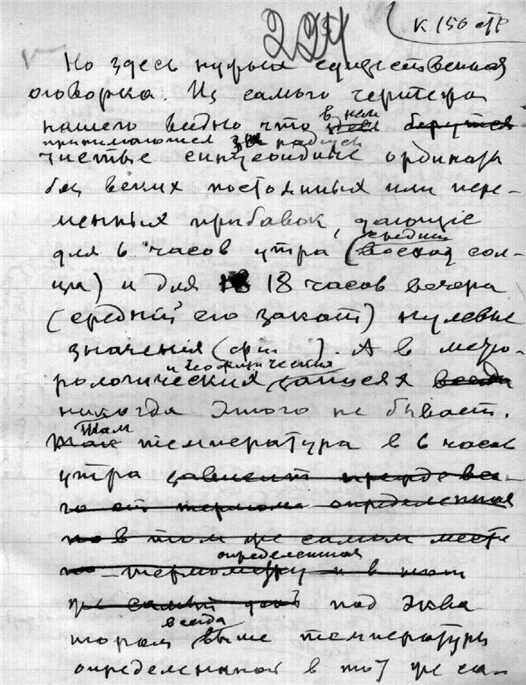 224
К 156 стр
Но здесь нужна существенная
оговорка. Из самого чертежа
нашего видно что в нем берутся
принимаются за радиусы
чистые синусоидные ординаты
без всяких постоянных или пере-
менных прибавок, дающие
для 6 часов утра (средний восход сол-
нца) и для 18 часов вечера
(средний его закат) нулевые
значения (фиг. ). А в метео-
рологических и геофизических записях всегда
никогда этого не бывает.
Там температура в 6 часов
утра зависит прежде все-
го от термома определенная
но в том же самом месте
по термометру и в тот
определенная
же самый день под эква
тором всегда выше температуры
определенной в тот же са-